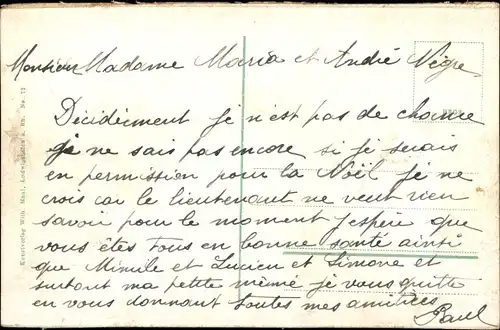 Monsieur Madame Maria et André Nègre
Décidément je n'est pas de chance
je ne sais pas encore si je serais
en permission pour la Noël je ne
crois car le lieutenant ne veut rien
savoir pour le moment j'espère que
vous êtes tous en bonne santé ainsi
que Mimile et Lucien et Simone et
surtout ma petite mémé je vous quitte
en vous donnant toutes mes amitiés
Paul
Kunstverlag Wilh. Ludwigshafen a. Rh. No. 12